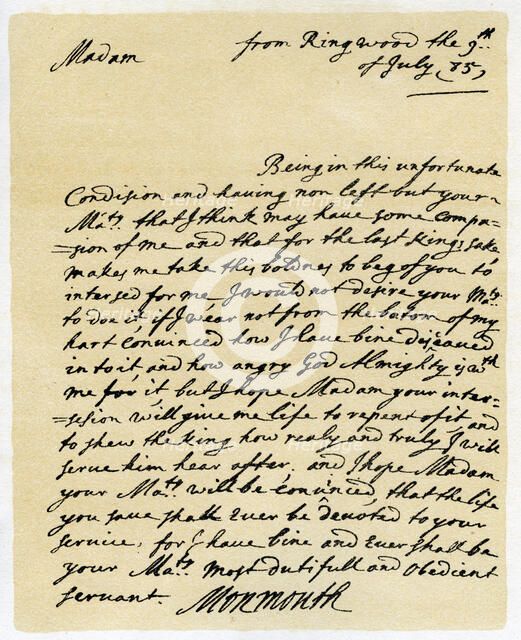 from Ringwood the 9th
Madam
of July 85,
Being in this unfortunate
Condision and having non left but your
Maty. that I think may have some compa=
=sion of me and that for the last Kings sake
makes me take this boldnes to beg of you to
intersed for me. I would not desire your Maty.
to doe it if I wear not from the botom of my
hart convinced how I have bine diseaved
in to it and how angry God Almighty is wth
me for it, but I hope Madam your inter=
=sesion will give me life to repent of it and
to shew the King how realy and truly I will
serve him hear after. and I hope Madam
your Maty. will be convinced, that the life
you save shall Ever be devoted to your
service, for I have bine and Ever shall be
your Matys. most dutifull and obedient
servant. Monmouth